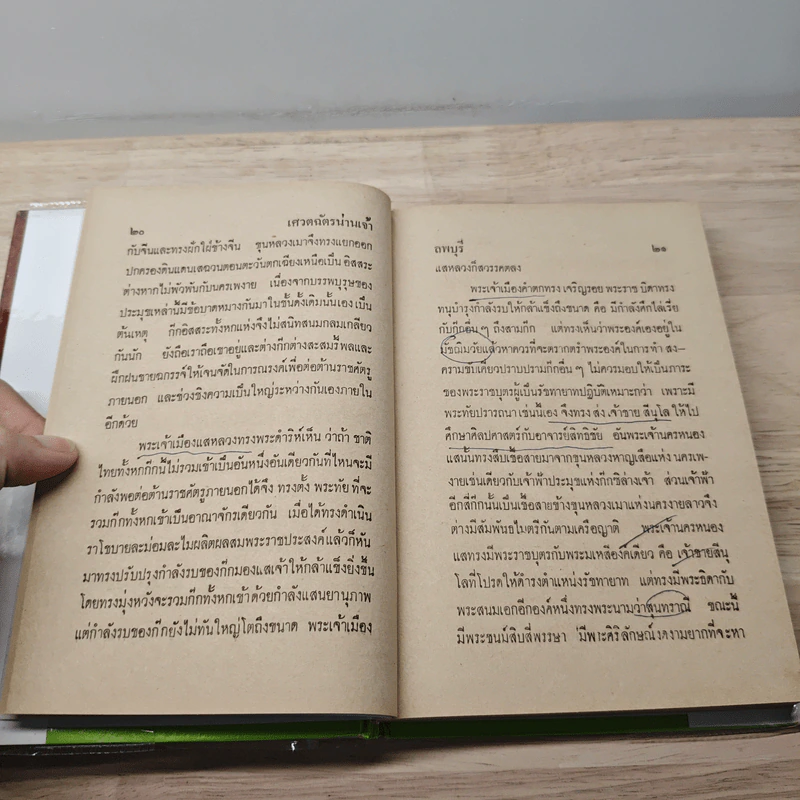 ๒๐ เศวตฉัตรน่านเจ้า
กับจีนและทรงฝักใฝ่ข้างจีน ขุนหลวงเมาจึงทรงแยกออก
ปกครองดินแดนเสฉวนตอนตะวันตกเฉียงเหนือเป็น อิสสระ
ต่างหากไม่พัวพันกับนครเพงาย เนื่องจากบรรพบุรุษของ
ประมุขเหล่านี้มีข้อบาดหมางกันมาในชั้นดั้งเดิมนั้นเอง เป็น
ต้นเหตุ ก๊กอิสสระทั้งหกแห่งจึงไม่สนิทสนมกลมเกลียว
กันนัก ยังถือเราถือเขาอยู่และต่างก๊กต่างสะสมรี้พลและ
ฝึกฝนชายฉกรรจ์ให้เจนจัดในการณรงค์เพื่อต่อต้านราชศัตรู
ภายนอก และช่วงชิงความเป็นใหญ่ระหว่างกันเองภายใน
อีกด้วย
พระเจ้าเมืองแสหลวงทรงพระดำริห์เห็น ว่าถ้า ชาติ
ไทยทั้งหกก๊กนี้ไม่รวมเข้าเป็นอันหนึ่งอันเดียวกันที่ไหนจะมี
กำลังพอต่อต้านราชศัตรูภายนอกได้จึง ทรงตั้ง พระทัย ที่จะ
รวมก๊กทั้งหกเข้าเป็นอาณาจักรเดียวกัน เมื่อได้ทรงดำเนิน
ราโชบายละม่อมละไมผลิตผลสมพระราชประสงค์แล้วก็หัน
มาทรงปรับปรุงกำลังรบของก๊กมองแสเจ้าให้กล้าแข็งยิ่งขึ้น
โดยทรงมุ่งหวังจะรวมก๊กทั้งหกเข้าด้วยกำลังแสนยานุภาพ
แต่กำลังรบของก๊กยังไม่ทันใหญ่โตถึงขนาด พระเจ้าเมือง
ลพบุรี ๒๑
แสหลวงก็สวรรคตลง
พระเจ้าเมืองคำตกทรง เจริญรอย พระราช บิดาทรง
ทนุบำรุงกำลังรบให้กล้าแข็งถึงขนาด คือ มีกำลังคึกไล่เรี่ย
กับก๊กอื่น ๆ ถึงสามก๊ก แต่ทรงเห็นว่าพระองค์เองอยู่ใน
มัชฌิมวัยแล้วหาควรที่จะตรากตรำพระองค์ในการทำ สง-
ครามขับเคี่ยวปราบปรามก๊กอื่น ๆ ไม่ ควรมอบให้เป็นภาระ
ของพระราชบุตรผู้เป็นรัชทายาทปฏิบัติเหมาะกว่า เพราะมี
พระทัยปรารถนาเช่นนี้เอง จึงทรง ส่ง เจ้าชาย สีนุโล ให้ไป
ศึกษาศิลปศาสตร์กับอาจารย์สิทธิชัย อันพระเจ้านครหนอง
แสนั้นทรงสืบเชื้อสายมาจากขุนหลวงหาญเสือแห่ง นครเพ-
งายเช่นเดียวกับเจ้าฟ้าประมุขแห่งก๊กซีล่างเจ้า ส่วนเจ้าฟ้า
อีกสี่ก๊กนั้นเป็นเชื้อสายข้างขุนหลวงเมาแห่งนครงายลาวจึง
ต่างมีสัมพันธไมตรีกันตามเครือญาติ พระเจ้านครหนอง
แสทรงมีพระราชบุตรกับพระมเหสีองค์เดียว คือ เจ้าชายสีนุ
โลที่โปรดให้ดำรงตำแหน่งรัชทายาท แต่ทรงมีพระธิดากับ
พระสนมเอกอีกองค์หนึ่งทรงพระนามว่าสุนทราณี ขณะนี้
มีพระชนม์สิบสี่พรรษา มีพระศิริลักษณ์งดงามยากที่จะหา